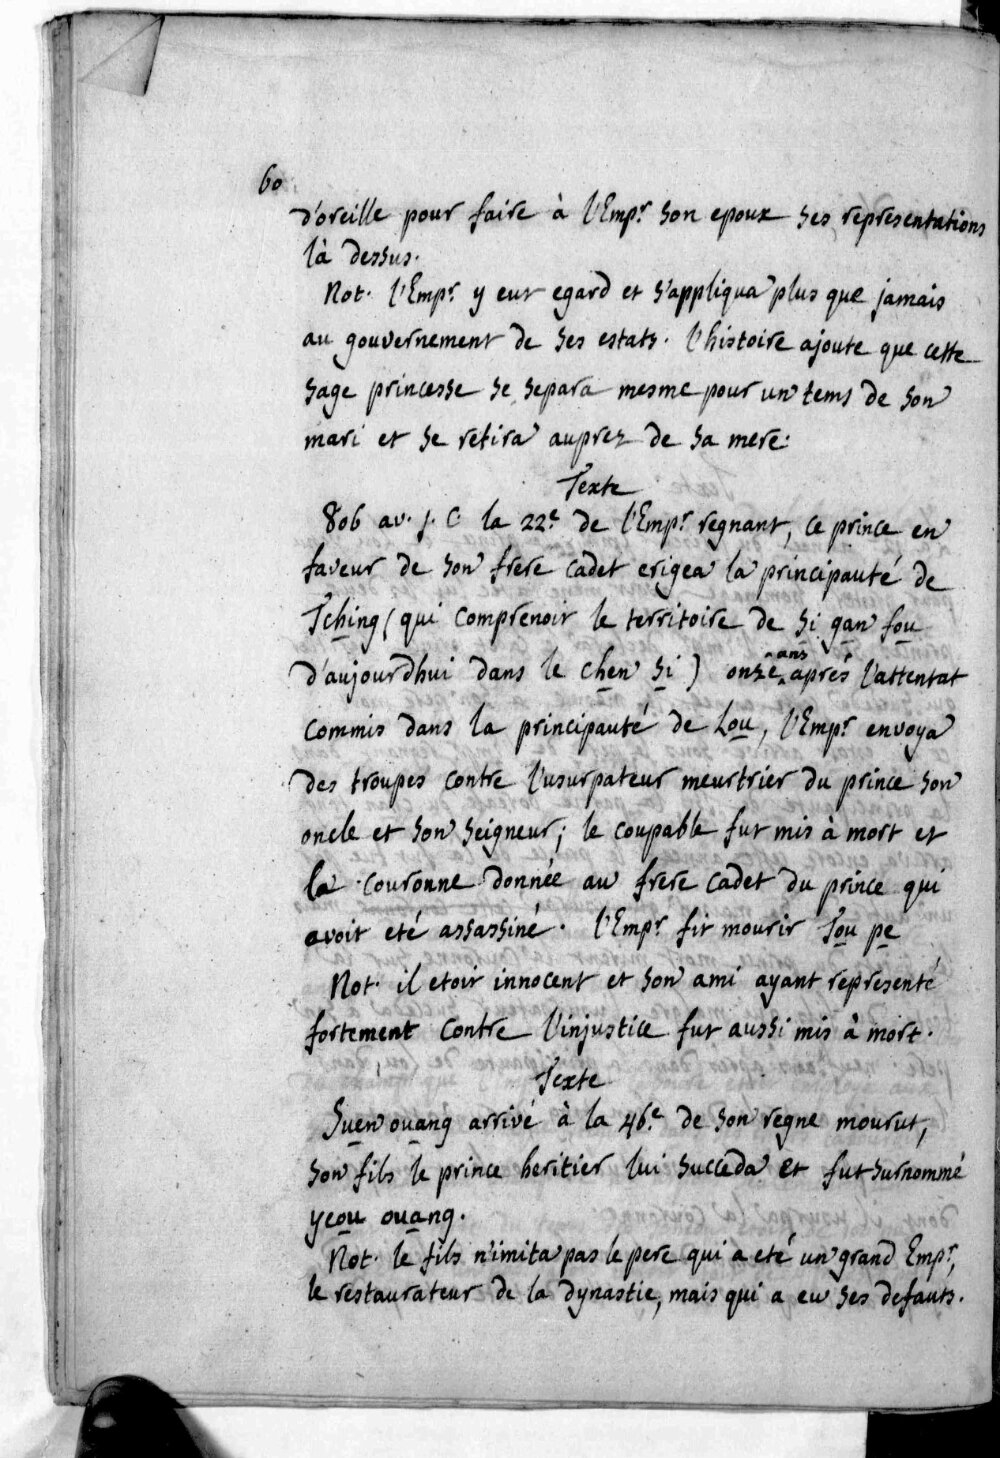 60
d'oreille pour faire à l'Empr. son epoux ses representations
là dessus.
Not. l'Empr. y eut egard et s'appliqua plus que jamais
au gouvernement de ses estats. l'histoire ajoute que cette
sage princesse se separa mesme pour un tems de son
mari et se retira auprez de sa mere.
Texte
806 av. j. C. la 22e. de l'Empr. regnant, ce prince en
faveur de son frere cadet erigea la principauté de
Tching (qui comprenoit le territoire de si gan fou
d'aujourdhui dans le chen si) onze ans après l'attentat
commis dans la principauté de Lou, l'Empr. envoya
des troupes contre l'usurpateur meurtrier du prince son
oncle et son seigneur; le coupable fut mis à mort et
la couronne donnée au frere cadet du prince qui
avoit eté assassiné. l'Empr. fit mourir Tou pe
Not. il etoit innocent et son ami ayant representé
fortement contre l'injustice fut aussi mis à mort.
Texte
Suen ouang arrivé à la 46e. de son regne mourut,
son fils le prince heritier lui succeda et fut surnommé
yeou ouang.
Not. le fils n'imita pas le pere qui a eté un grand Empr.,
le restaurateur de la dynastie, mais qui a eu ses defauts.